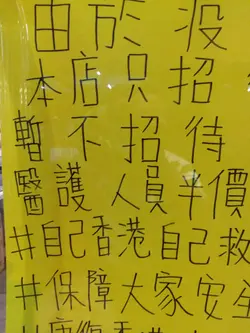 由於沒
本店只招
暫不招待
醫護人員半價
#自己香港自己救
#保障大家安全